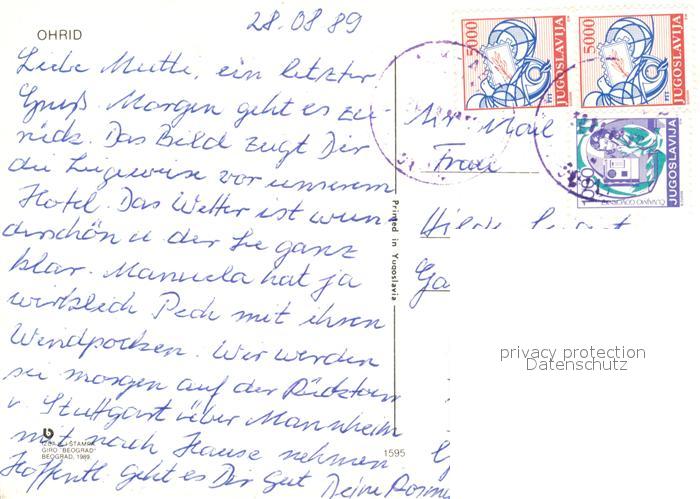 28.08.89
OHRID
Liebe Mutti, ein letzter
Gruß. Morgen geht es zu-
rück. Das Bild zeigt Dir
die Liegewiese vor unserem
Hotel. Das Wetter ist wun-
derschön u. der See ganz
klar. Manuela hat ja
wirklich Pech mit ihren
Windpocken. Wir werden
sie morgen auf der Rücktour
v. Stuttgart über Mannheim
mit nach Hause nehmen
Hoffentl. geht es Dir gut Deine
IZRADA I ŠTAMPA
GIRO "BEOGRAD"
BEOGRAD, 1989.
1595
Printed in Yugoslavia
5000
PTT
JUGOSLAVIJA
5000
PTT
JUGOSLAVIJA
JUGOSLAVIJA
Air Mail
Frau
privacy protection
Datenschutz